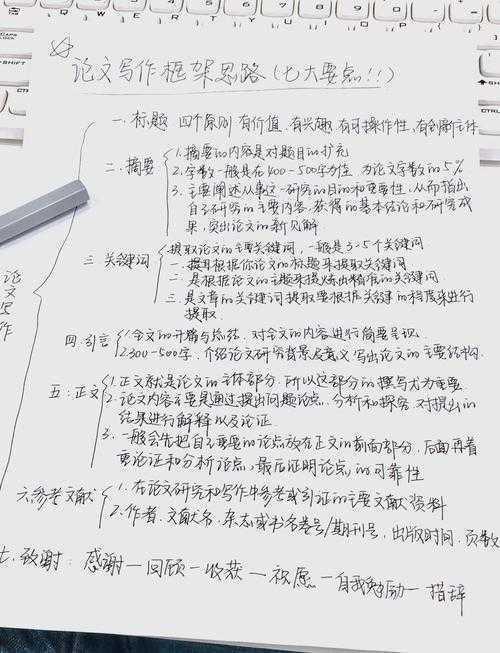 论文写作框架思路(七大要点!!)
一.标题 四个原则 有价值.有兴趣.有可操作性,有创新主体
二.摘要
1.摘要的内容是对题目的扩充
2.字数一般是在400-500字为佳 为论文字数的5%
3.主要阐述从事这一研究的目的和重要性,从而指出
自己研究的主要内容.获得的基本结论和研究成
果,突出论文的新见解
三 关键词
提取论文的主要关键词,一般是3-5个关键词
一.提取根据你论文的标题来提取关键词
二.是根据论文的主题来提炼出精准的关键词
三.是文章的关键词提取要根据关键的程度来进行
提取
四.引言
1.全文的开篇与总结.对全文的内容进行简要呈现.
2.300-500字.介绍论文研究背景及意义写出论文的主要结构.
五:正文
1.正文就是论文的主体部分.所以这部分的撰写尤为重要
2.论文内容主要是通过提出问题论点.分析和探究.对提出的
结果进行解释以及论证
3.一般会先把自己重要的论点放在正文的前面部分,后面再着
重论证和分析论点,最后证明论点的可靠性
六.参考文献
1.在论文研究和写作中参考或引证的主要文献资料
2.作者.文献名.杂志或书名卷号/期刊号,出版时间.页数
七.致谢:感谢—回顾—收获—祝愿—自我勉励—措辞
论文写作